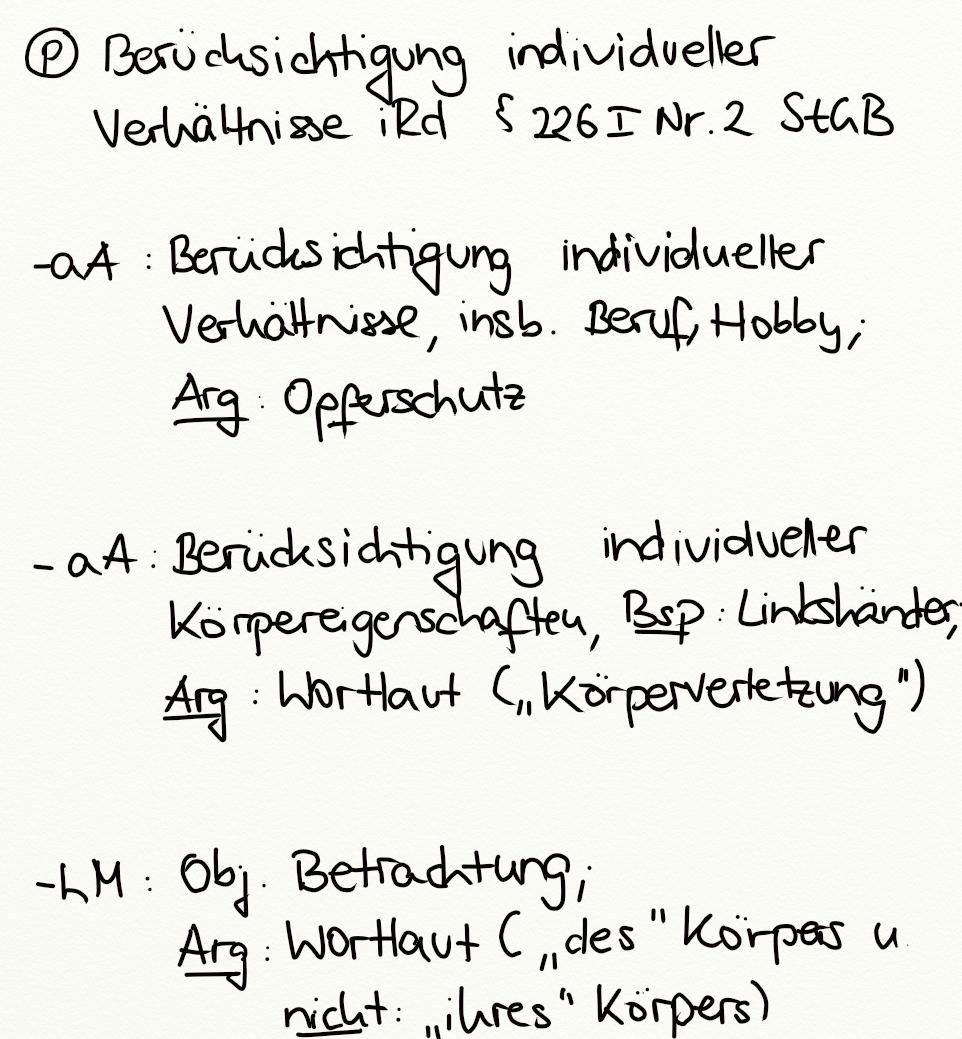 Ⓟ Berücksichtigung individueller
Verhältnisse iRd § 226 I Nr. 2 StGB
- aA : Berücksichtigung individueller
Verhältnisse, insb. Beruf, Hobby;
Arg : Opferschutz
- aA : Berücksichtigung individueller
Körpereigenschaften, Bsp : Linkshänder;
Arg : Wortlaut („Körperverletzung")
- hM : Obj. Betrachtung;
Arg : Wortlaut („des" Körpers u.
nicht: „ihres" Körpers)